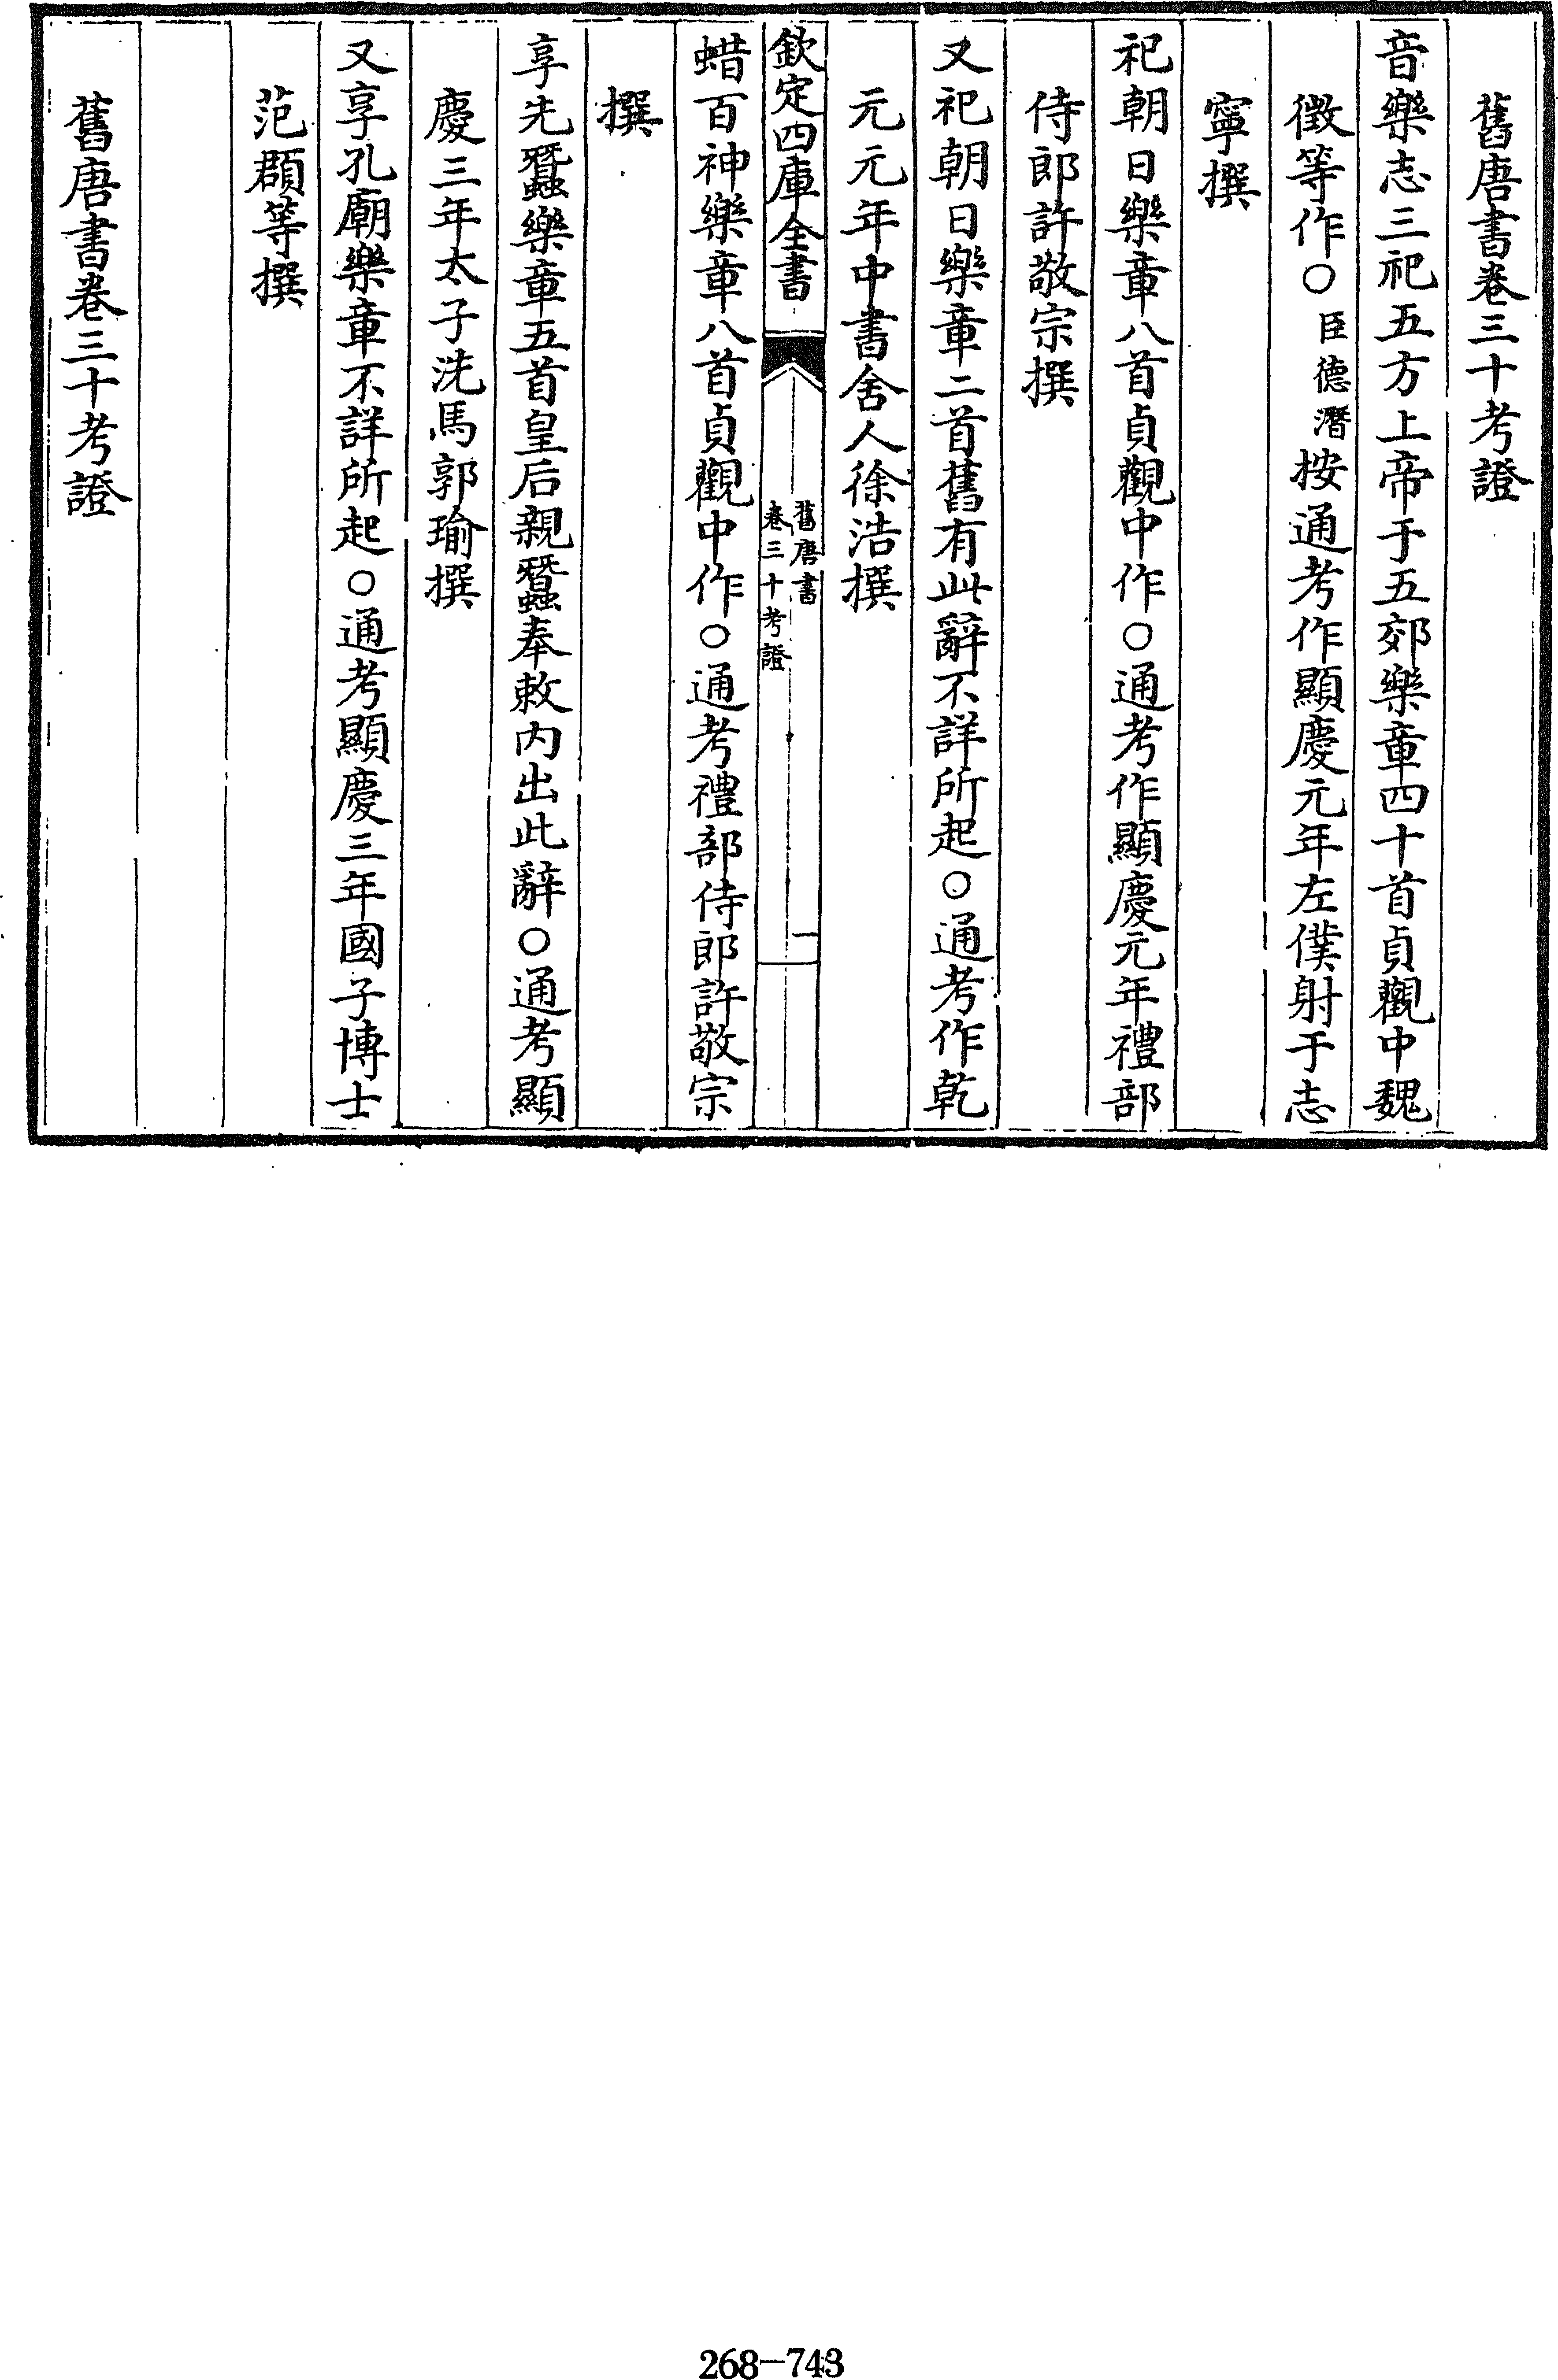 舊唐書卷三十考證
音樂志三祀五方上帝于五郊樂章四十首貞觀中魏
徵等作○臣德潛按通考作顯慶元年左僕射于志
寧撰
祀朝日樂章八首貞觀中作○通考作顯慶元年禮部
侍郎許敬宗撰
又祀朝日樂章二首舊有此辭不詳所起○通考作乾
元元年中書舍人徐浩撰
欽定四庫全書
舊唐書
卷三十考證
一
蜡百神樂章八首貞觀中作○通考禮部侍郎許敬宗
撰
享先蠶樂章五首皇后親蠶奉敕內出此辭○通考顯
慶三年太子洗馬郭瑜撰
又享孔廟樂章不詳所起○通考顯慶三年國子博士
范頵等撰
舊唐書卷三十考證
268-743